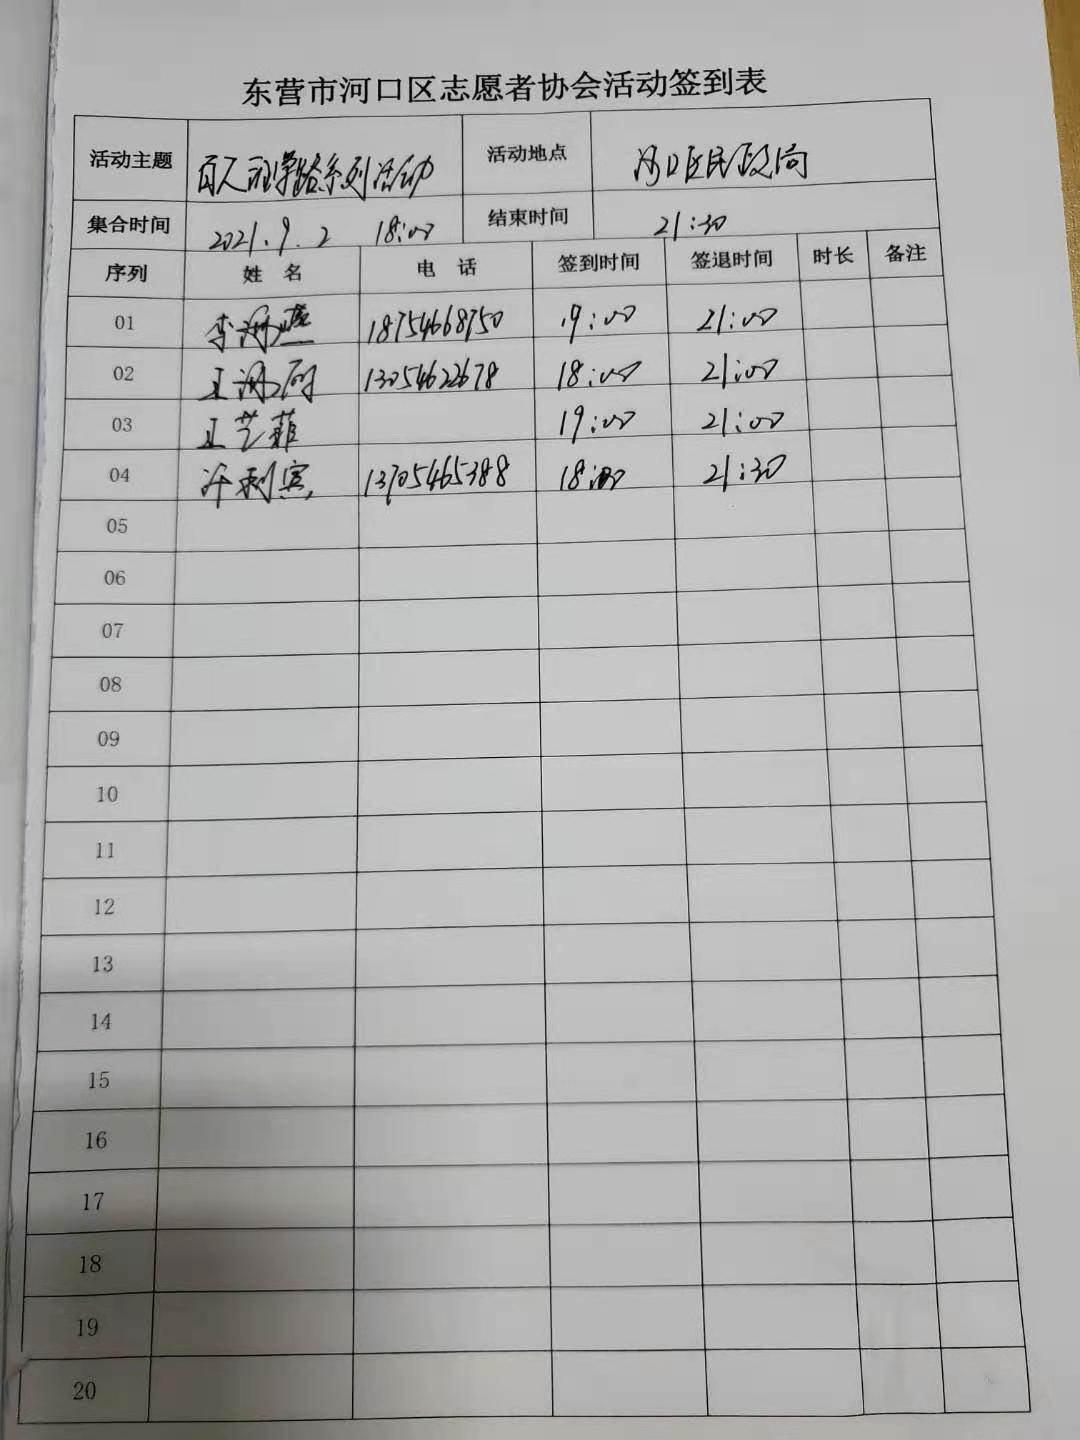 东营市河口区志愿者协会活动签到表
活动主题 百人 学路系列活动 活动地点 河口区民政局
集合时间 2021.9.2 18:00 结束时间 21:30
序列 姓 名 电 话 签到时间 签退时间 时长 备注
01 李 燕 18754668750 19:00 21:00
02 王 13054622678 18:00 21:00
03 王艺菲 19:00 21:00
04 13705465388 18:00 21:30
05
06
07
08
09
10
11
12
13
14
15
16
17
18
19
20